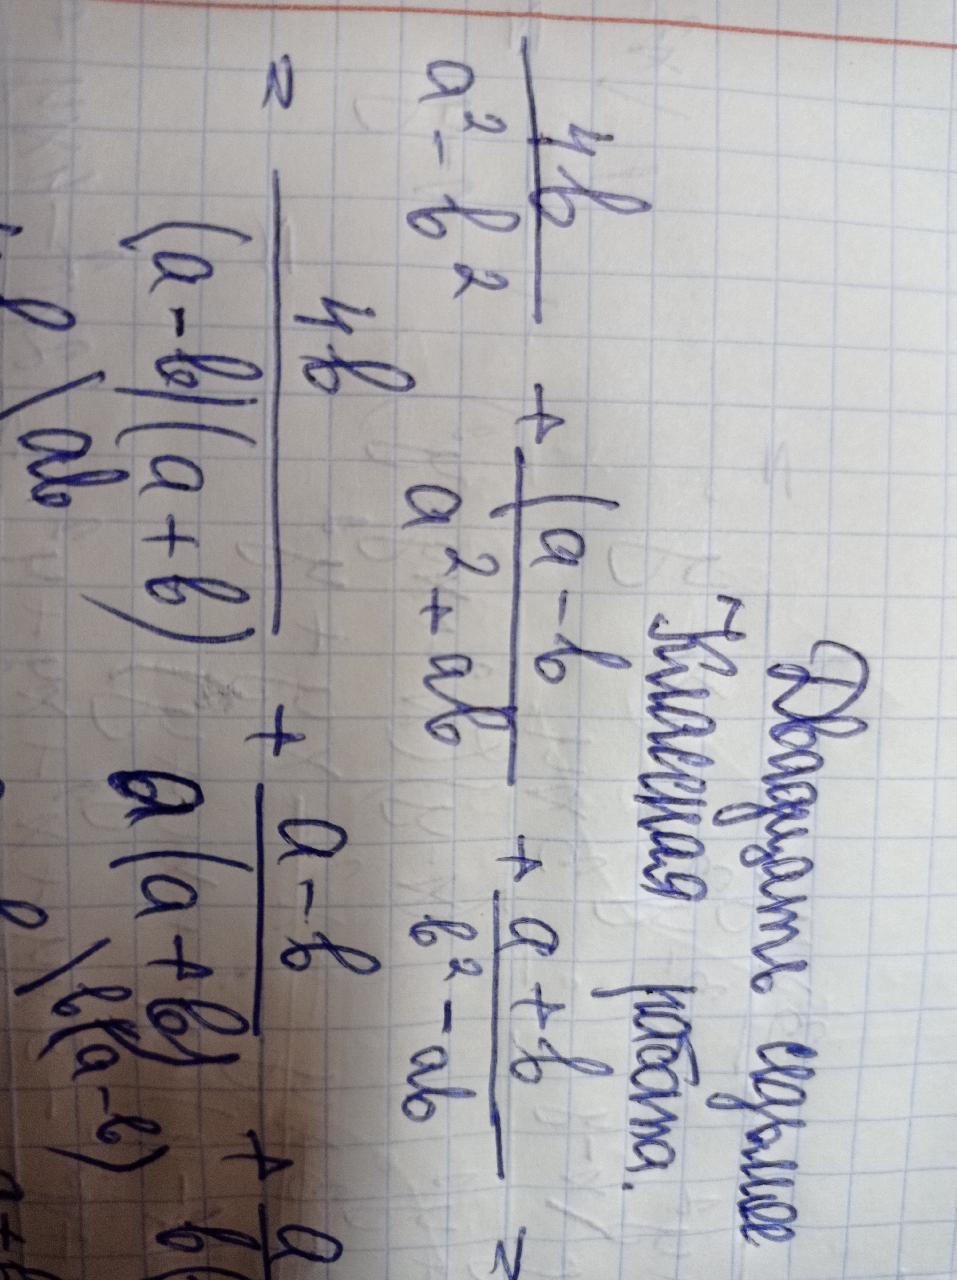 Двадцать седьмое
Классная работа.
4b/(a² - b²) + (a - b/(a² + ab) + (a + b)/(b² - ab) =
= 4b/((a - b)(a + b)) + (a - b)/(a(a + b)) + a
\ab \b(a - b)